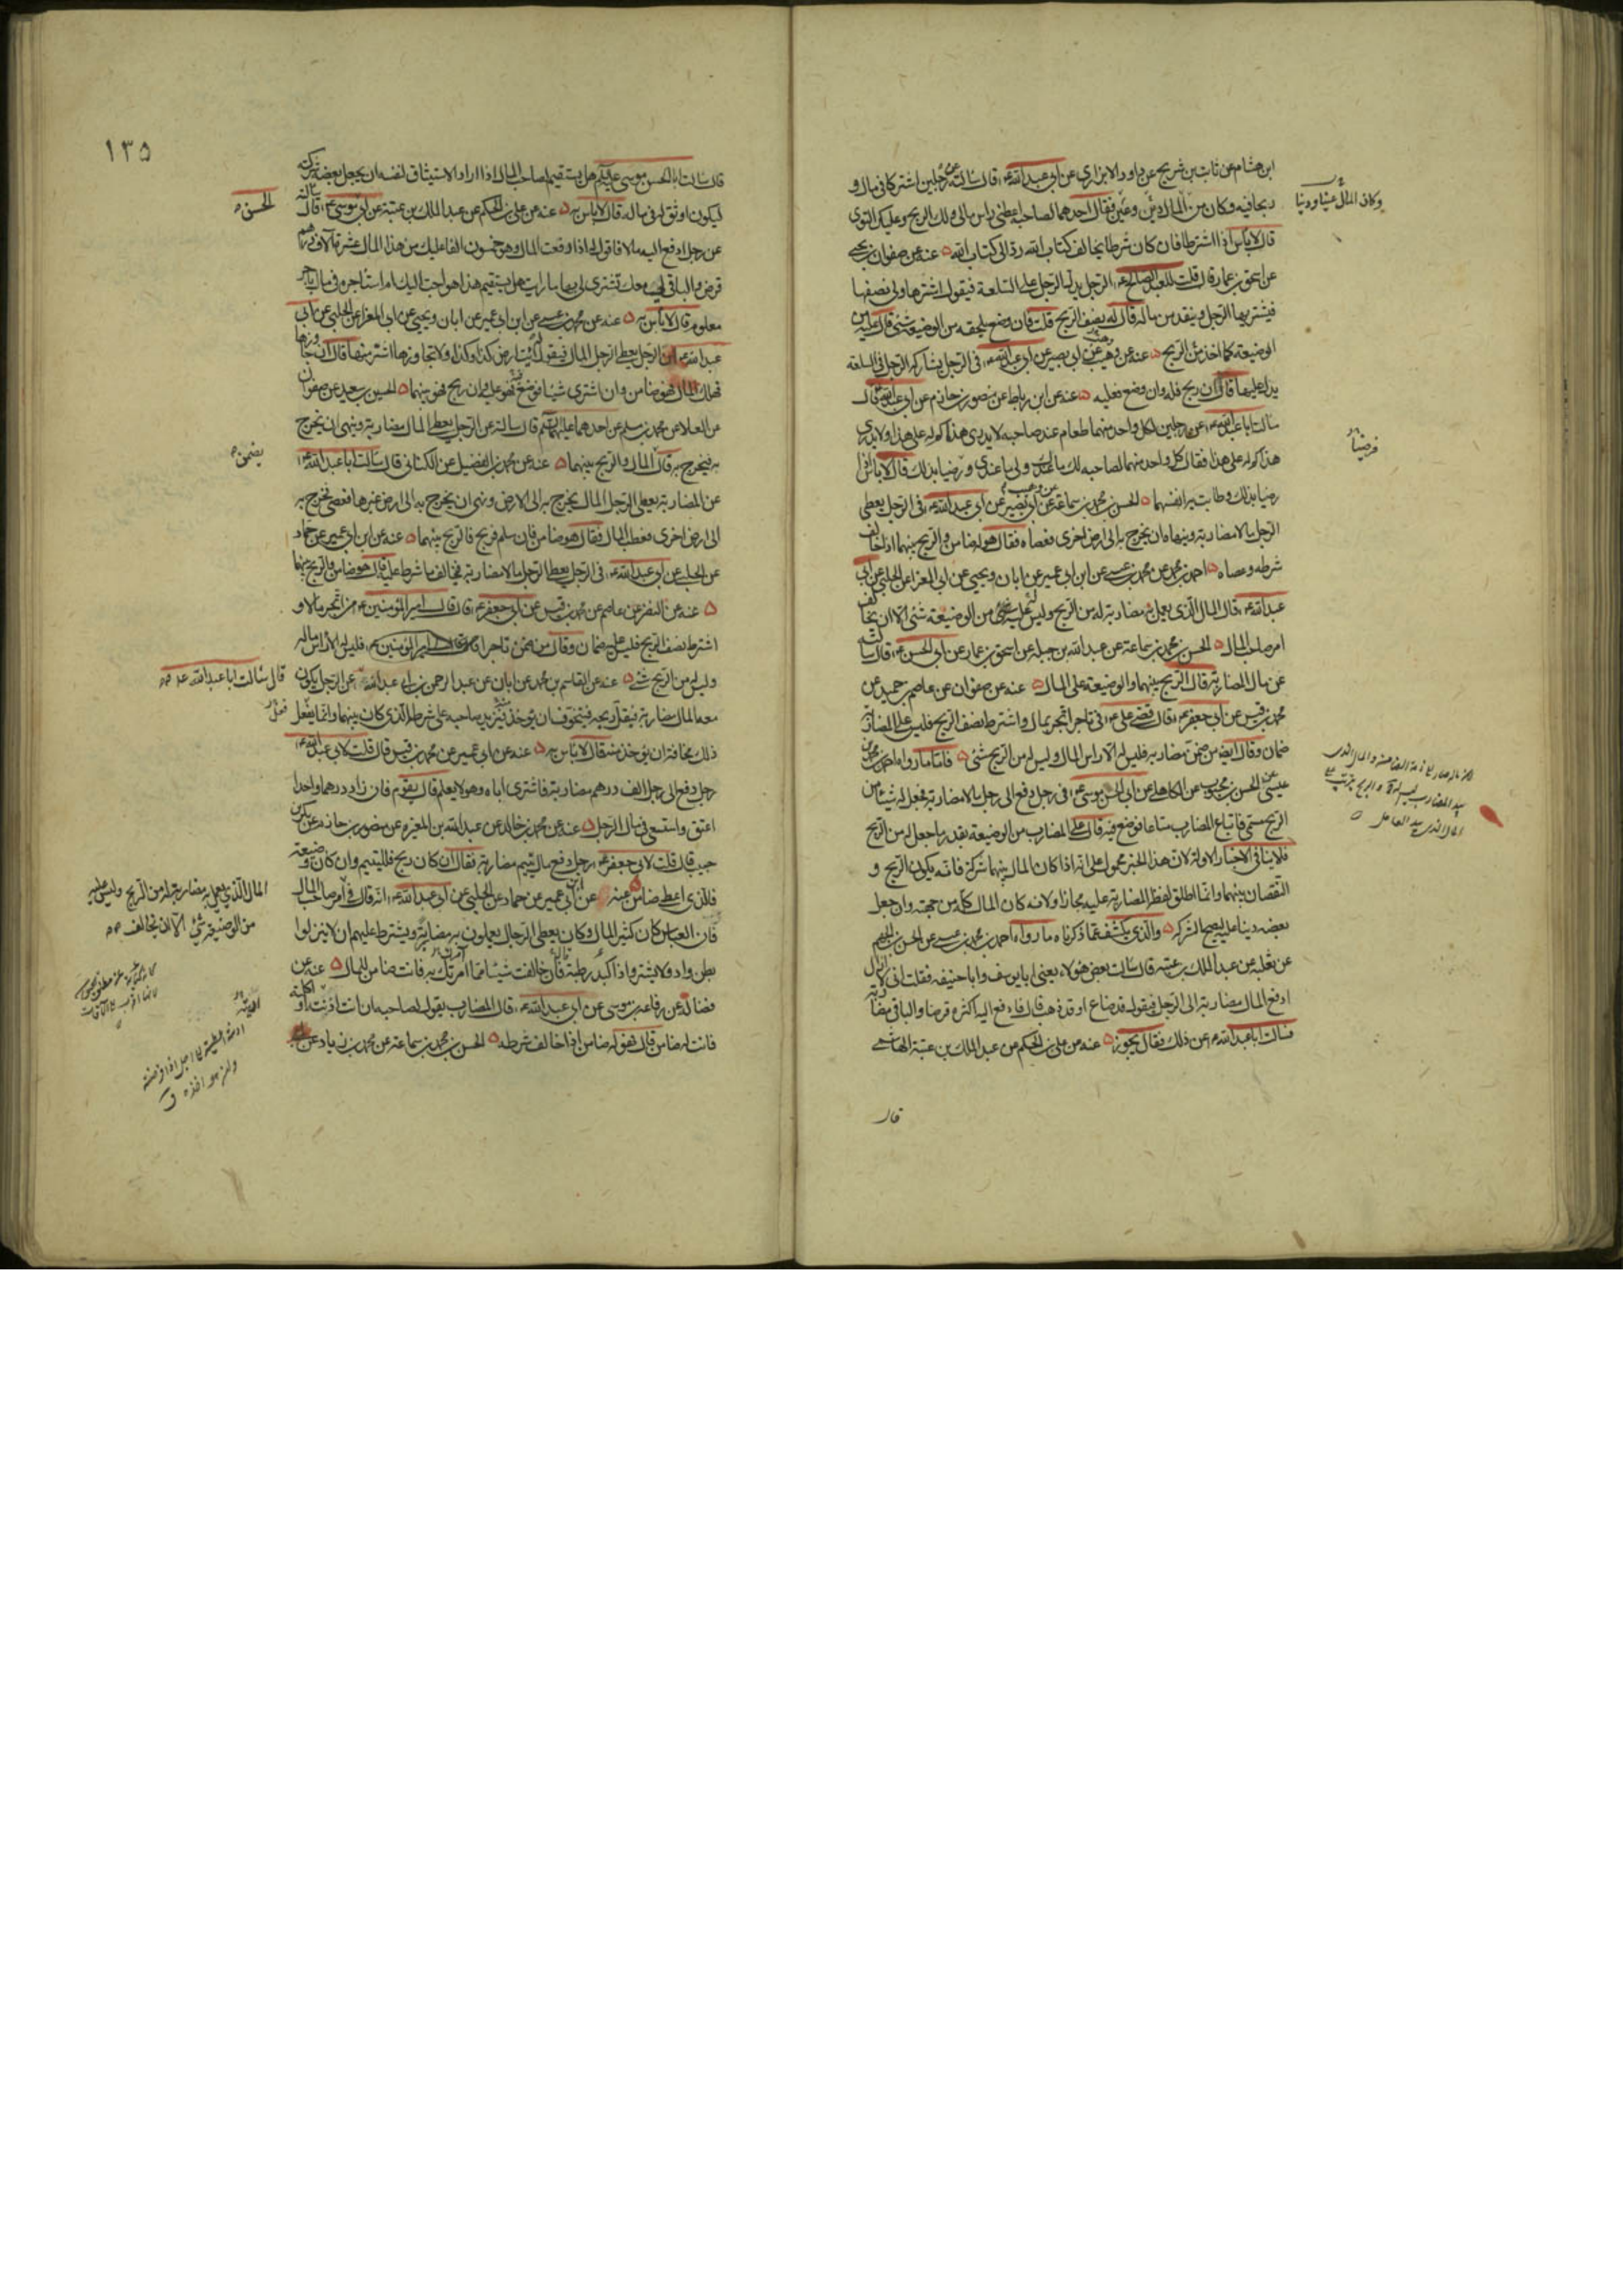 ابن هشام عن ثابت بن شريح عن داود الابزاري عن ابي عبد الله ع قال سالته عن رجلين اشتركا في مال و
ربحا فيه وكان من المال دين وعين فقال احدهما لصاحبه اعطني راس مالي ولك الربح وعليك التوى
قال لا باس اذا اشترطا فان كان شرطا يخالف كتاب الله رد الى كتاب الله عنه عن صفوان بن يحيى
عن اسحق بن عمار قال قلت للعبد الصالح ع الرجل يدل الرجل على السلعة فيقول اشترها ولي نصفها
فيشتريها الرجل وينقد من ماله قال له نصف الربح قلت فان وضع يلحقه من الوضيعة شئ قال عليه من
الوضيعة كما اخذ من الربح عنه عن وهيب عن ابي بصير عن ابي عبد الله ع في الرجل يشاركه الرجل في السلعة
يدل عليها قال ان ربح فله وان وضع فعليه عنه عن ابن رباط عن منصور بن حازم عن ابي عبد الله ع قال
سالت ابا عبد الله ع عن رجلين لكل واحد منهما طعام عند صاحبه لا يدري هذا كم له على هذا ولا يدري
هذا كم له على هذا فقال كل واحد منهما لصاحبه لك ما عندك ولي ما عندي ورضيا بذلك قال لا باس اذا
رضيا بذلك وطابت به انفسهما الحسن بن محمد بن سماعة عن وهيب عن ابي بصير عن ابي عبد الله ع في الرجل يعطي
الرجل مالا مضاربة وينهاه ان يخرج به الى ارض اخرى فعصاه فقال هو له ضامن والربح بينهما اذا خالف
شرطه وعصاه احمد بن محمد عن محمد بن عيسى عن ابن ابي عمير عن ابان ويحيى عن ابي المغرا عن الحلبي عن ابي
عبد الله ع قال المال الذي يعمل به مضاربة له من الربح وليس عليه من الوضيعة شئ الا ان يخالف
امر صاحب المال الحسن بن محمد بن سماعة عن عبد الله بن جبلة عن اسحق بن عمار عن ابي الحسن ع قال سالته
عن مال المضاربة قال الربح بينهما والوضيعة على المال عنه عن صفوان عن عاصم بن حميد عن
محمد بن قيس عن ابي جعفر ع قال قضى علي ع في تاجر اتجر بمال واشترط نصف الربح فليس على المضارب
ضمان وقال ايضه من ضمن مضاربه فليس له الا راس المال وليس له من الربح شئ فاما ما رواه احمد بن محمد بن
عيسى عن الحسن بن محبوب عن الكاهلي عن ابي الحسن موسى ع في رجل دفع الى رجل مالا مضاربة فجعل له شيئا من
الربح مسمى فابتاع المضارب متاعا فوضع فيه قال على المضارب من الوضيعة بقدر ما جعل له من الربح
فلا ينافي الاخبار الاولة لان هذا الخبر محمول على انه اذا كان المال بينهما شركة فانه يكون الربح و
النقصان بينهما وانما اطلق لفظ المضاربة عليه مجازا ولانه كان المال كله من جهته وان جعل
بعضه دينا عليه ليصح الشركه والذي يكشف عما ذكرناه ما رواه احمد بن محمد بن عيسى عن الحسن بن الجهم
عن ثعلبة عن عبد الملك بن عتبة قال سالت بعض هؤلاء يعني ابا يوسف وابا حنيفه فقلت اني لا ازال
ادفع المال مضاربة الى الرجل فيقول قد ضاع او قد ذهب قال فادفع اليه اكثره قرضا والباقي مضاربة
فسالت ابا عبد الله ع عن ذلك فقال يجوز عنه عن علي بن الحكم عن عبد الملك بن عتبة الهاشمي
قال
وكان المال عينا ودينا
فرضيا
١٣٥
قال سالت ابا الحسن موسى ع هل يستقيم لصاحب المال اذا اراد الاستيثاق لنفسه ان يجعل بعضه شركة
ليكون اوثق له في ماله قال لا باس به عنه عن علي بن الحكم عن عبد الملك بن عتبة عن ابي موسى ع قال سالته
عن رجل ادفع اليه مالا فاقول له اذا دفعت المال وهو خمسون الفا عليك من هذا المال عشرة آلاف درهم
قرض والباقي لي معك تشتري لي بها ما رايت هل يستقيم هذا هو احب اليك ام استاجره في مال باجر
معلوم قال لا باس به عنه عن محمد بن عيسى عن ابن ابي عمير عن ابان ويحيى عن ابي المغرا عن الحلبي عن ابي
عبد الله ع في الرجل يعطي الرجل المال فيقول له ايت ارض كذا وكذا ولا تجاوزها اشتر منها قال ان جاوزها
فهلك المال فهو ضامن وان اشترى شيئا فوضع فهو عليه وان ربح فهو بينهما الحسين بن سعيد عن صفوان
عن العلا عن محمد بن مسلم عن احدهما عليهما السلم قال سالته عن الرجل يعطي المال مضاربة وينهى ان يخرج
به فيخرج به قال المال والربح بينهما عنه عن محمد بن الفضيل عن الكناني قال سالت ابا عبد الله ع
عن المضاربة يعطي الرجل المال يخرج به الى الارض ونهى ان يخرج به الى ارض غيرها فعصى فخرج به
الى ارض اخرى فعطب المال فقال هو ضامن فان سلم فربح فالربح بينهما عنه عن ابن ابي عمير عن حماد
عن الحلبي عن ابي عبد الله ع في الرجل يعطي الرجل مالا مضاربة فيخالف ما شرط عليه قال هو ضامن والربح بينهما
عنه عن النضر عن عاصم عن محمد بن قيس عن ابي جعفر ع قال قال امير المؤمنين ع من اتجر مالا و
اشترط نصف الربح فليس عليه ضمان وقال من ضمن تاجرا فليس له الا راس ماله
وليس له من الربح شئ عنه عن القاسم بن محمد عن ابان عن عبد الرحمن بن ابي عبد الله عن الرجل يكون
معه المال مضاربة فيقل ربحه فيتخوف ان يؤخذ فيزيد صاحبه على شرطه الذي كان بينهما وانما يفعل
ذلك مخافة ان يؤخذ منه قال لا باس به عنه عن ابن ابي عمير عن محمد بن قيس قال قلت لابي عبد الله ع
رجل دفع الى رجل الف درهم مضاربة فاشترى اباه وهو لا يعلم قال يقوم فان زاد درهما واحدا
اعتق واستسعى في مال الرجل عنه عن محمد بن خالد عن عبد الله بن المغيره عن منصور بن حازم عن بكر بن
حبيب قال قلت لابي جعفر ع رجل دفع مال يتيم مضاربة فقال ان كان ربح فلليتيم وان كان وضيعة
فالذي اعطى ضامن عنه عن ابن ابي عمير عن حماد عن الحلبي عن ابي عبد الله ع انه قال في امر صاحب المال
فان العباس كان كثير المال وكان يعطي الرجال يعملون به مضاربة ويشترط عليهم ان لا ينزلوا
بطن واد ولا يشتروا ذا كبد رطبة فان خالفت شيئا مما امرتك به فانت ضامن للمال عنه عن
فضالة عن رفاعة بن موسى عن ابي عبد الله ع قال المضارب يقول لصاحبه ان انت ادنته او اكلته
فانت له ضامن قال فهو له ضامن اذا خالف شرطه الحسن بن محمد بن سماعة عن محمد بن زياد عن
الحسن
يضمن
قال سالت ابا عبد الله ع
المال الذي يعمل به مضاربة له من الربح وليس عليه
من الوضيعة شئ الا ان يخالف